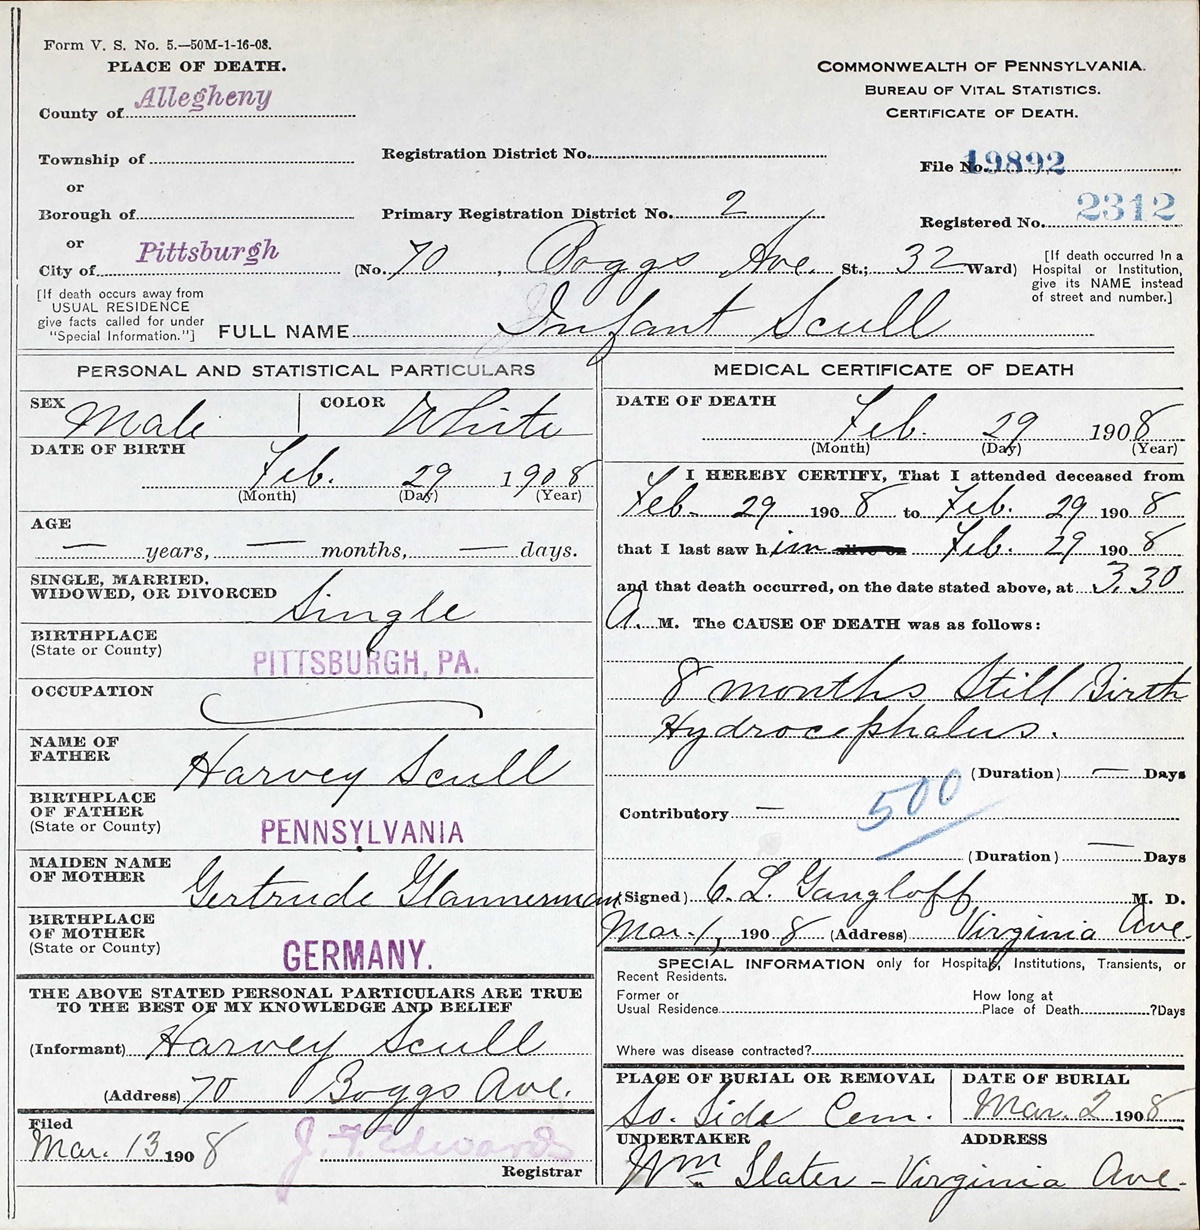 Form V. S. No. 5.—50M-1-16-08.
PLACE OF DEATH.
County of Allegheny
Township of
or
Borough of
or
City of Pittsburgh
[If death occurs away from
USUAL RESIDENCE
give facts called for under
"Special Information."]
COMMONWEALTH OF PENNSYLVANIA.
BUREAU OF VITAL STATISTICS.
CERTIFICATE OF DEATH.
Registration District No.
File No. 19892
Primary Registration District No. 2
Registered No. 2312
(No. 70, Boggs Ave. St.; 32 Ward)
[If death occurred in a
Hospital or Institution,
give its NAME instead
of street and number.]
FULL NAME Infant Scull
PERSONAL AND STATISTICAL PARTICULARS
SEX Male COLOR White
DATE OF BIRTH
Feb. 29 1908
(Month) (Day) (Year)
AGE
— years, — months, — days.
SINGLE, MARRIED,
WIDOWED, OR DIVORCED Single
BIRTHPLACE
(State or County) PITTSBURGH, PA.
OCCUPATION
NAME OF
FATHER Harvey Scull
BIRTHPLACE
OF FATHER
(State or County) PENNSYLVANIA
MAIDEN NAME
OF MOTHER Gertrude Glannerman
BIRTHPLACE
OF MOTHER
(State or County) GERMANY.
THE ABOVE STATED PERSONAL PARTICULARS ARE TRUE
TO THE BEST OF MY KNOWLEDGE AND BELIEF
(Informant) Harvey Scull
(Address) 70 Boggs Ave.
Filed
Mar. 13 1908 J. F. Edwards
Registrar
MEDICAL CERTIFICATE OF DEATH
DATE OF DEATH
Feb. 29 1908
(Month) (Day) (Year)
I HEREBY CERTIFY, That I attended deceased from
Feb. 29 1908 to Feb. 29 1908
that I last saw him Feb. 29 1908
and that death occurred, on the date stated above, at 3.30
A. M. The CAUSE OF DEATH was as follows:
8 months Still Birth
Hydrocephalus.
(Duration) — Days
Contributory —
500
(Duration) — Days
(Signed) C. L. Gangloff M. D.
Mar. 1, 1908 (Address) Virginia Ave.
SPECIAL INFORMATION only for Hospitals, Institutions, Transients, or
Recent Residents.
Former or
Usual Residence
How long at
Place of Death ?Days
Where was disease contracted?
PLACE OF BURIAL OR REMOVAL
So. Side Cem.
DATE OF BURIAL
Mar. 2 1908
UNDERTAKER ADDRESS
Wm. Slater – Virginia Ave.